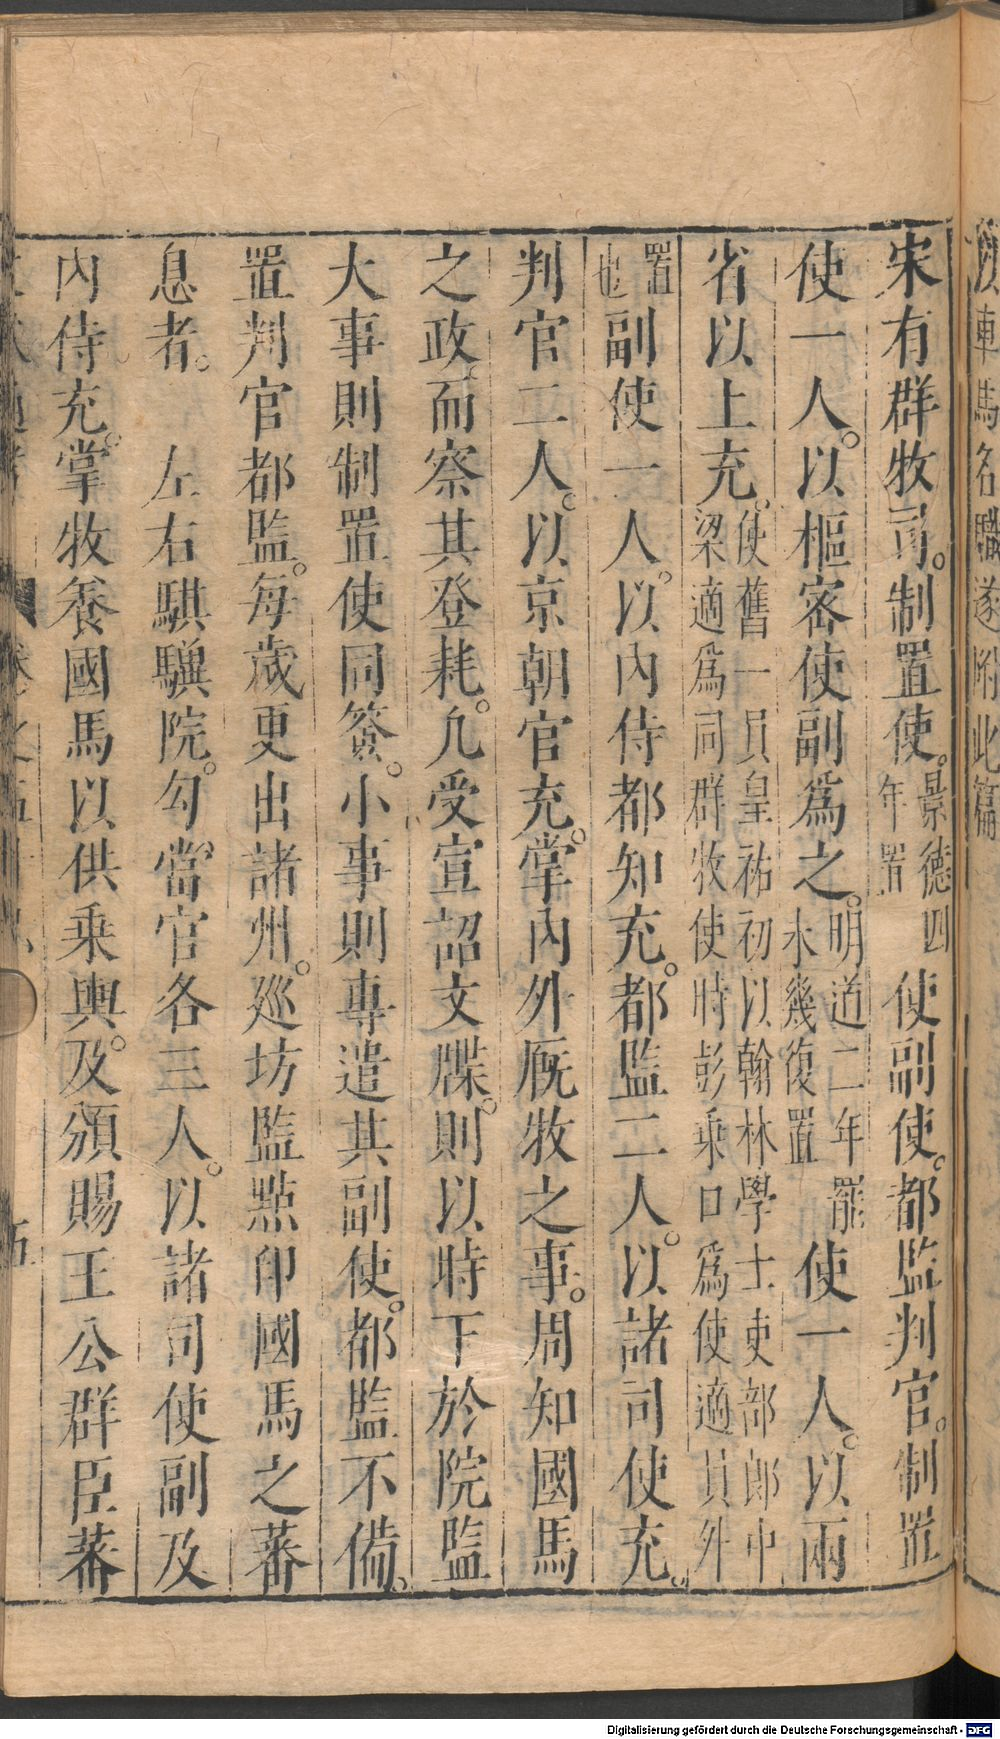 車馬各職遂附此篇
宋有群牧司。制置使。景德四年置使副使。都監判官。制置
使一人。以樞密使副爲之。明道二年罷未幾復置使一人。以兩
省以上充。使舊一員皇祐初以翰林學士吏部郎中梁適爲同群牧使時彭乘口爲使適員外
置也副使一人。以內侍都知充。都監二人。以諸司使充。
判官二人。以京朝官充。掌內外厩牧之事。周知國馬
之政。而察其登耗。凡受宣詔文牒。則以時下於院監
大事則制置使同簽。小事則專遣其副使。都監不備。
置判官都監。每歲更出諸州。廵坊監點印國馬之蕃
息者。 左右騏驥院。勾當官各三人。以諸司使副及
內侍充。掌牧養國馬以供乘輿。及頒賜王公群臣蕃
Digitalisierung gefördert durch die Deutsche Forschungsgemeinschaft - DFG